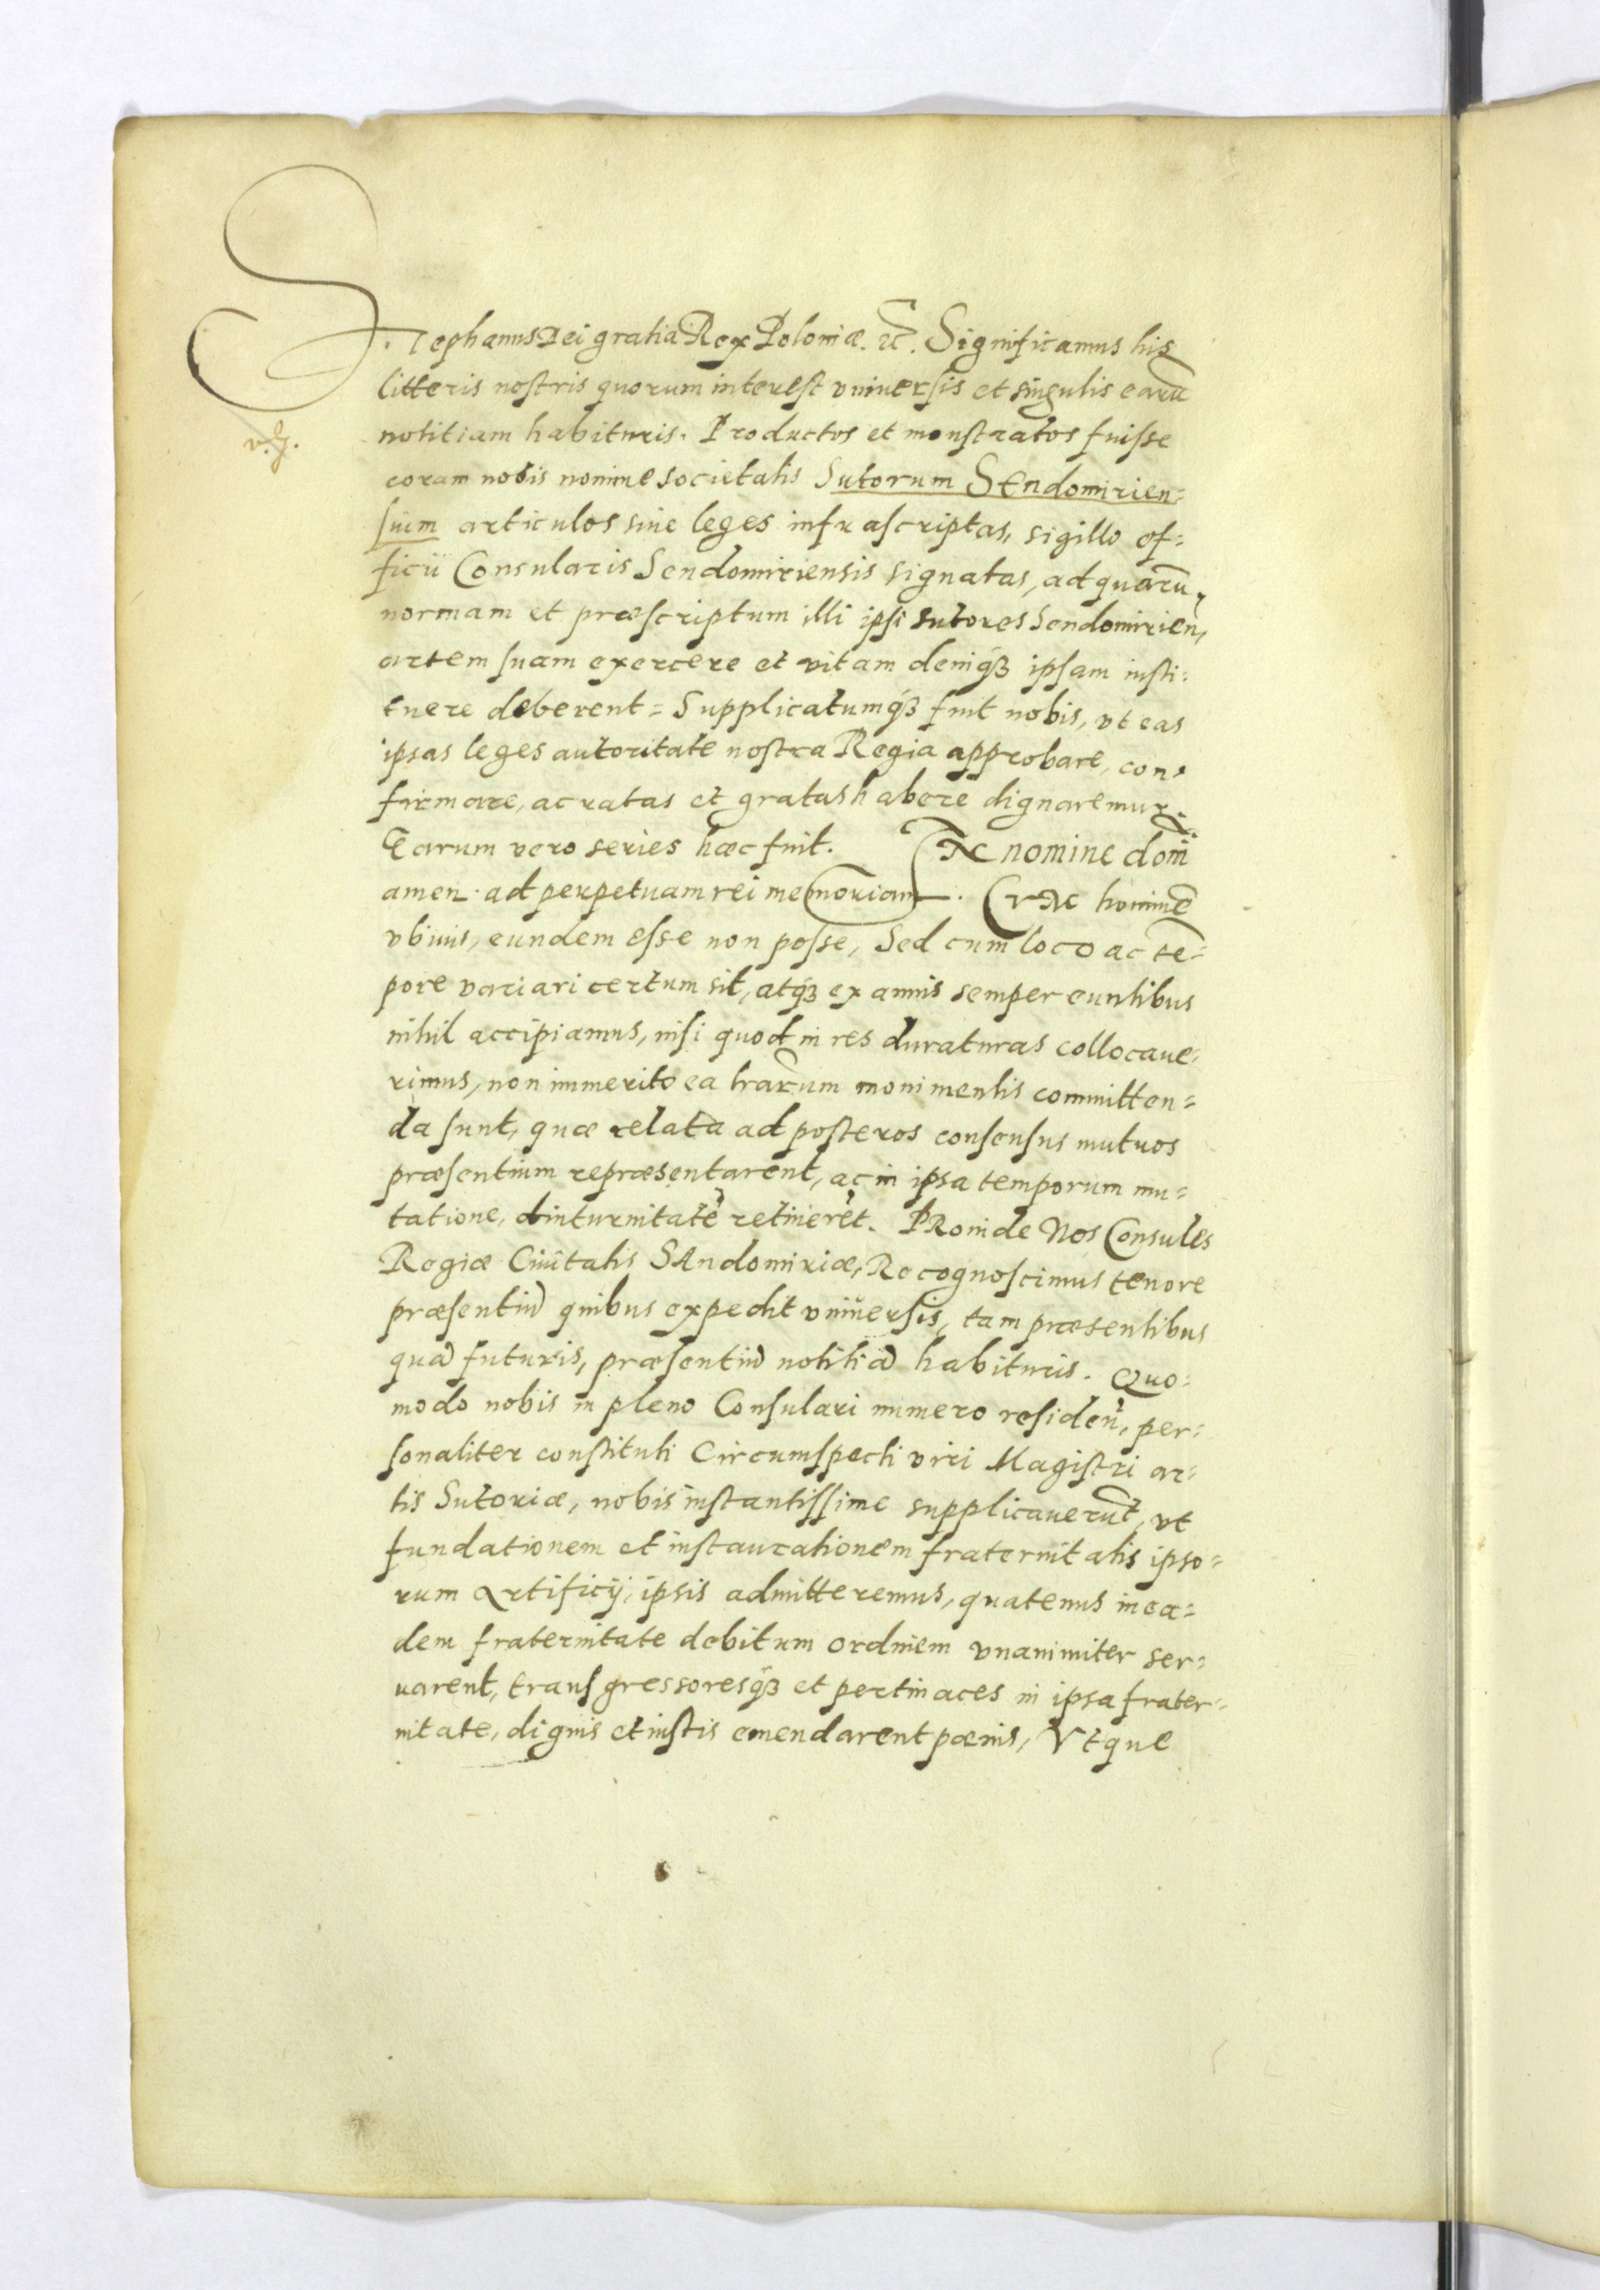 Stephanus Dei gratia Rex Poloniæ. ꝛc. Significamus his
litteris nostris quorum interest vniuersis et singulis earū
notitiam habituris. Productos et monstratos fuisse
coram nobis nomine societatis Sutorum SEndomirien=
sium articulos siue leges infrascriptas, sigillo of=
ficii Consularis Sendomiriensis signatas, ad quarū
normam et præscriptum illi ipsi sutores Sendomirien,
artem suam exercere et vitam deniqȝ ipsam insti=
tuere deberent = Supplicatumqȝ fuit nobis, vt eas
ipsas leges autoritate nostra Regia approbare, con=
firmare, ac ratas et gratas habere dignaremur.
Earum vero series hæc fuit. IN nomine domi
amen. ad perpetuam rei memoriam. CVM hominē
vbiuis, eundem esse non posse, Sed cum loco ac tē=
pore variari certum sit, atqȝ ex annis semper euntibus
nihil accipiamus, nisi quod in res duraturas collocaue=
rimus, non immerito ea lrarum monimentis committen=
da sunt, quæ relata ad posteros consensus mutuos
præsentium repræsentarent, ac in ipsa temporum mu=
tatione, diuturnitatē retinerēt. PRoinde Nos Consules
Regiæ Ciuitatis SAndomiriæ, Recognoscimus tenore
præsentiū quibus expedit vniuersis, tam præsentibus
quā futuris, præsentiū notitiā habituris. Quo=
modo nobis in pleno Consulari numero residen, per=
sonaliter constituti Circumspecti viri Magistri ar=
tis Sutoriæ, nobis instantissime supplicauerūt, vt
fundationem et instaurationem fraternitatis ipso=
rum Artificij, ipsis admitteremus, quatenus in ea=
dem fraternitate debitum ordinem vnanimiter ser=
uarent, transgressoresqȝ et pertinaces in ipsa frater=
nitate, dignis et iustis emendarent pœnis, Vtque